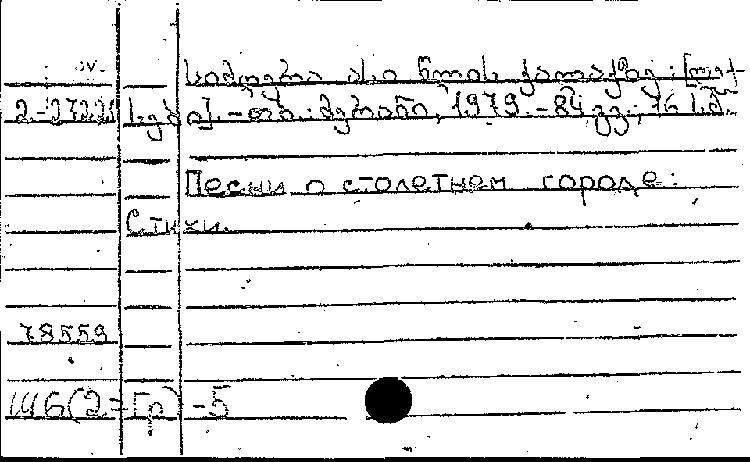 სიმღერა ასი წლის ქალაქზე : [ლექ-
2.-27221 სები]. - თბ. : მერანი, 1979. - 84 გვ.; 16 სმ.
Песни о столетнем городе:
Стихи.
78559
Ш6(2=Гр) -5